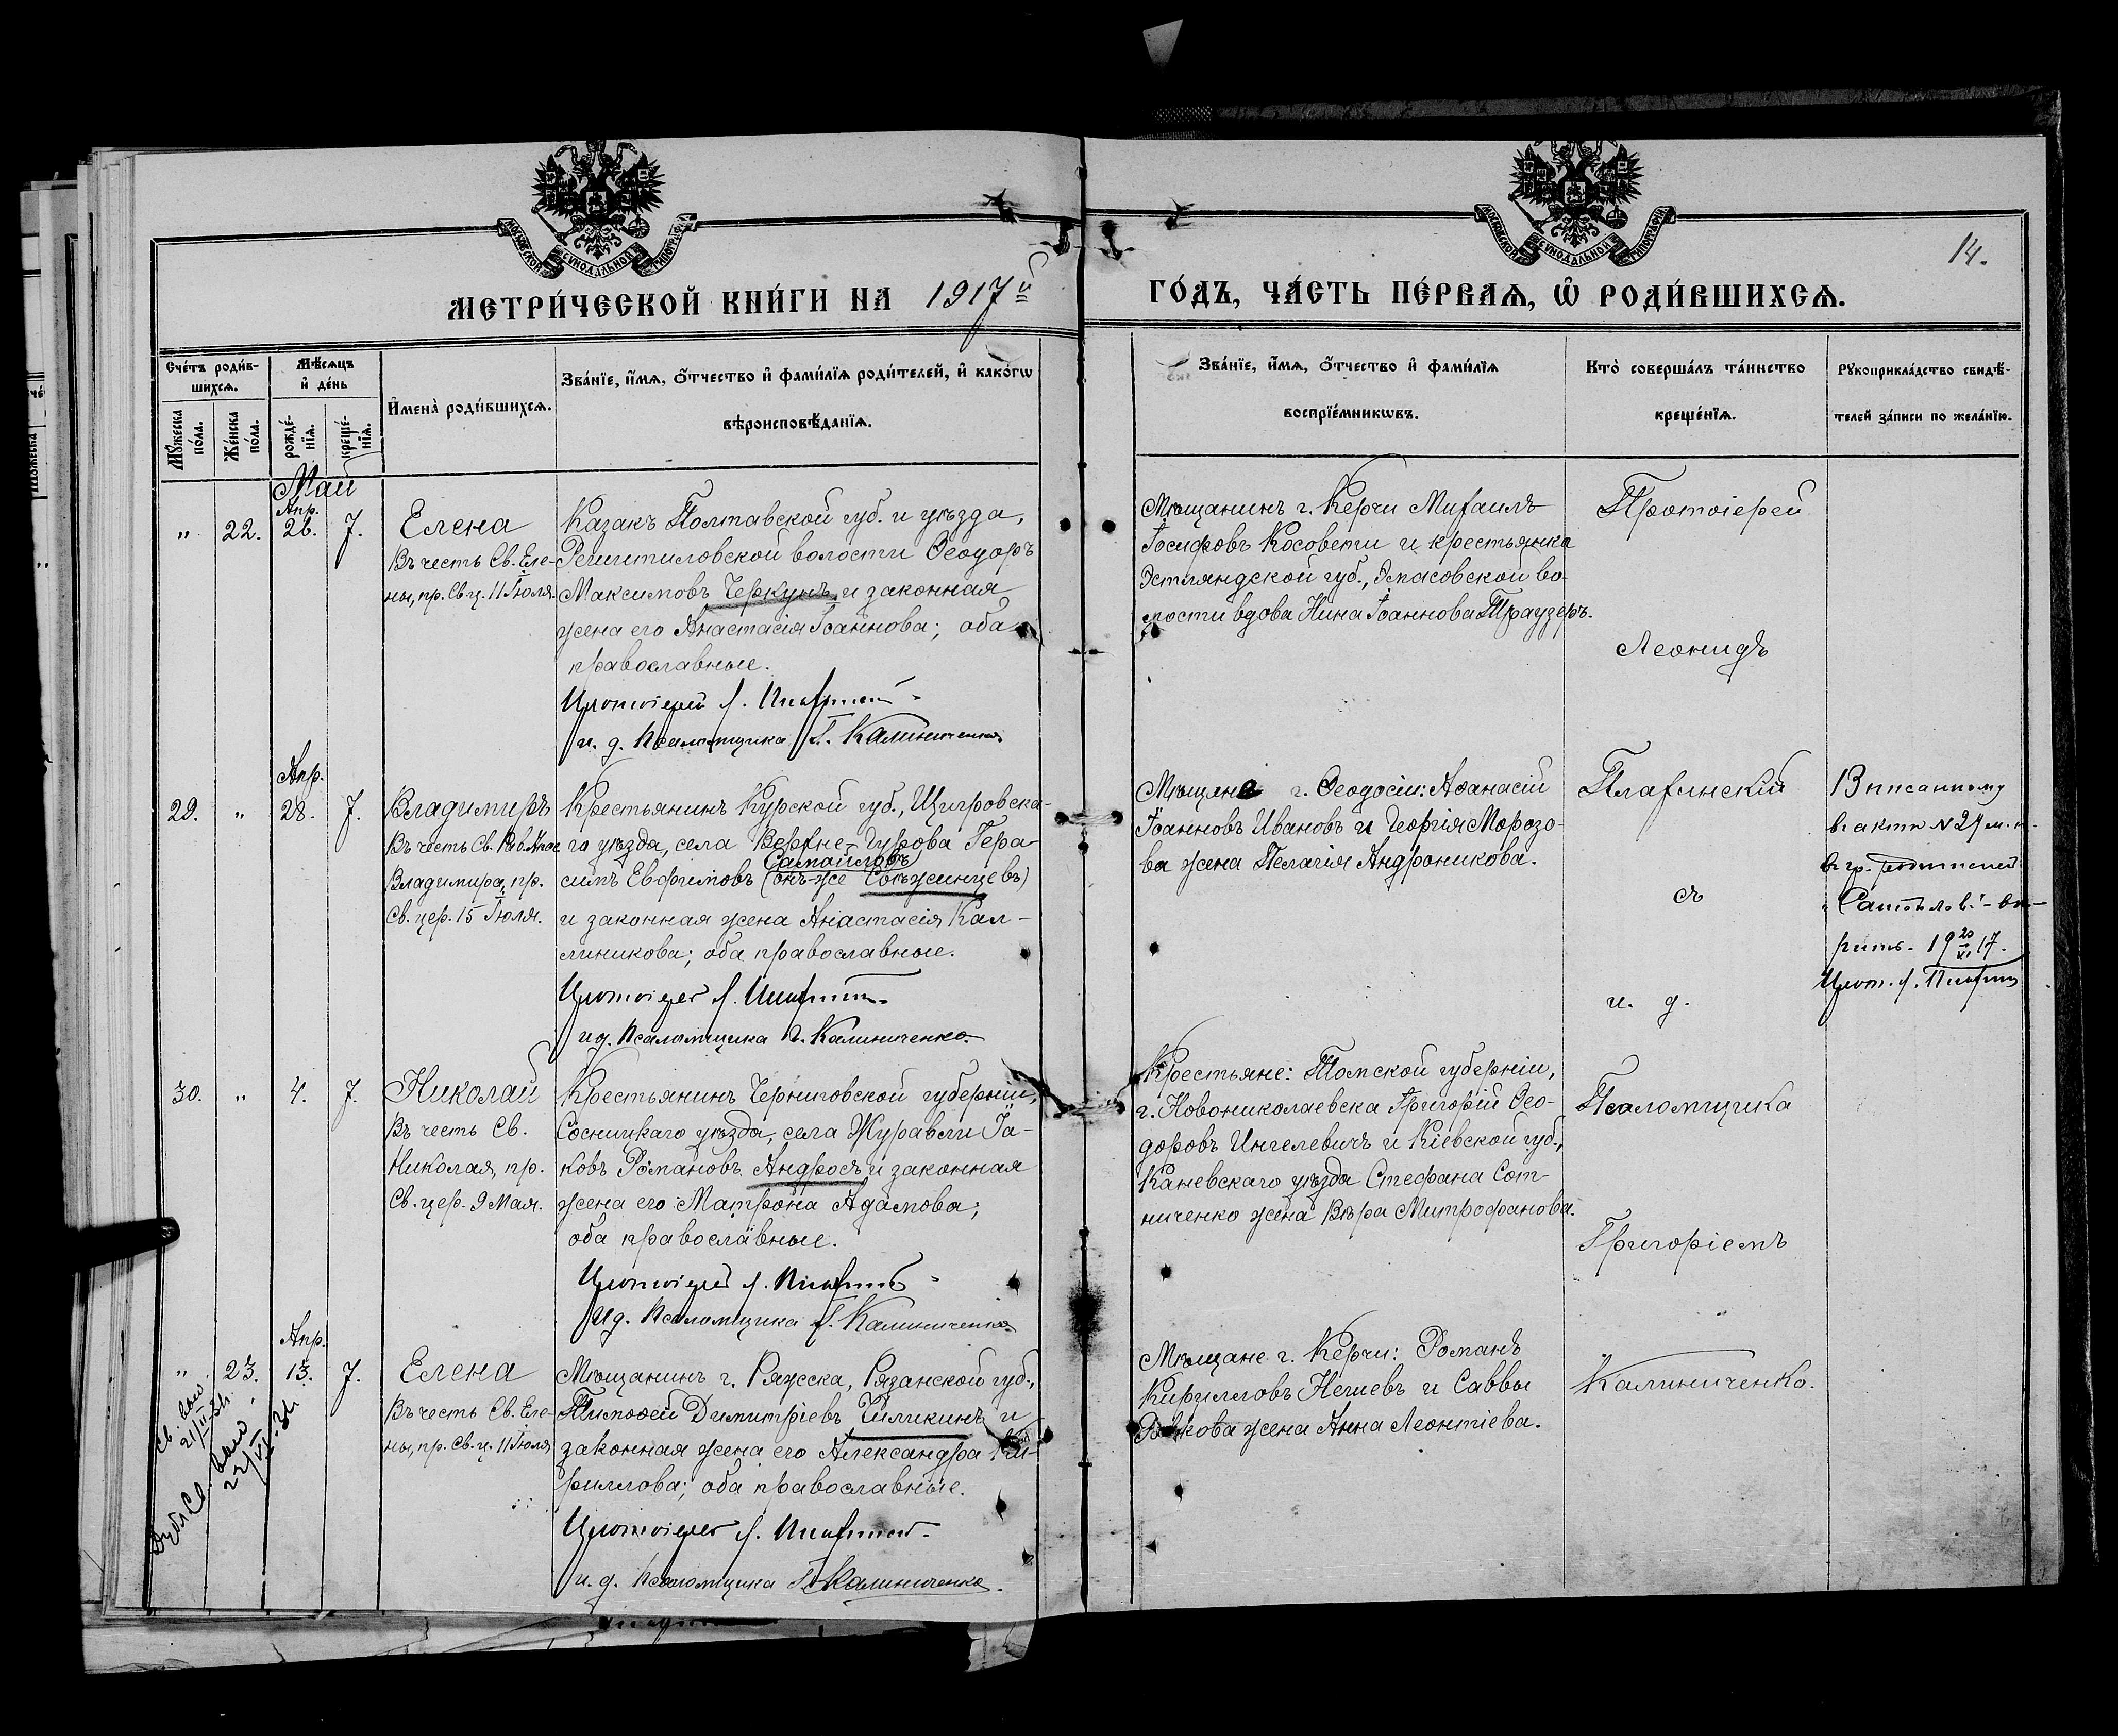 МОСКОВСКОЙ СѴНОДАЛЬНОЙ ТИПОГРАФІИ
МОСКОВСКОЙ СѴНОДАЛЬНОЙ ТИПОГРАФІИ
14.
МЕТРИ́ЧЕСКОЙ КНИ́ГИ НА 1917й
ГО́ДЪ, ЧА́СТЬ ПЕ́РВАЯ, Ѿ РОДИ́ВШИХСЯ.
Сче́тъ роди́в-
шихся.
Мѣ́сяцъ
и де́нь
Му́жеска
по́ла.
Же́нска
по́ла.
рожде́-
нія.
креще́-
нія.
Имена̀ роди́вшихся.
Зва́ніе, и́мя, о́тчество и фами́лія роди́телей, и како́гѡ
вѣроисповѣ́данія.
Зва́ніе, и́мя, о́тчество и фами́лія
воспріе́мникѡвъ.
Кто̀ соверша́лъ та́инство
креще́нія.
Рукоприкла́дство свидѣ́-
телей за́писи по жела́нію.
Май
Апр.
„ 22. 26. 7. Елена
Въ честь Св. Еле-
ны, пр. Св. ц. 11 Іюля.
Казакъ Полтавской губ. и уѣзда,
Решетиловской волости Ѳеодоръ
Максимовъ Черкунъ и законная
жена его Анастасія Іоаннова; оба
православные.
Протоіерей Л.
и. д. Псаломщика Г. Калиниченко
Мѣщанинъ г. Керчи Михаилъ
Іосифовъ Косовети и крестьянка
Эстляндской губ., во-
лости вдова Нина Іоаннова Траузеръ.
Протоіерей
Леонидъ
Апр.
29. „ 28. 7. Владимиръ
Въ честь Св. Рав. Апос
Владимира, пр.
Св. цер. 15 Іюля.
Крестьянинъ Курской губ., Щигровска-
го уѣзда, села Верхне-Гурова Гера-
Самойловъ
симъ Евфимовъ (онъ-же )
и законная жена Анастасія Кал-
линикова; оба православные.
Протоіерей Л.
и д. Псаломщика Г. Калиниченко
Мѣщане г. Ѳеодосіи: Аѳанасій
Іоанновъ Ивановъ и Георгія Морозо-
ва жена Пелагія Андроникова.
съ
и. д.
въ актѣ N 29 м. п.
19 20/XI 17.
Прот. Л.
30. „ 4. 7. Николай
Въ честь Св.
Николая, пр.
Св. цер. 9 Мая.
Крестьянинъ Черниговской губерніи,
Сосницкаго уѣзда, села Журавли Іа-
ковъ Романовъ Андросъ и законная
жена его Матрона Адамова;
оба православные.
Протоіерей Л.
и д. Псаломщика Г. Калиниченко
Крестьяне: Томской губерніи,
г. Новониколаевска Григорій Ѳео-
доровъ Ингелевичъ и Кіевской губ.,
Каневскаго уѣзда Стефана Сот-
ниченко жена Вѣра Митрофанова.
Псаломщика
Григоріемъ
Апр.
„ 23. 13. 7. Елена
Въ честь Св. Еле-
ны, пр. Св. ц. 11 Іюля
Мѣщанинъ г. Ряжска, Рязанской губ.,
Тимоѳей Димитріевъ и
законная жена его Александра Ки-
риллова; оба православные.
Протоіерей Л.
и. д. Псаломщика Г. Калиниченко.
Мѣщане г. Керчи: Романъ
Кирилловъ Нешевъ и Саввы
жена Анна Леонтіева.
Калиниченко.